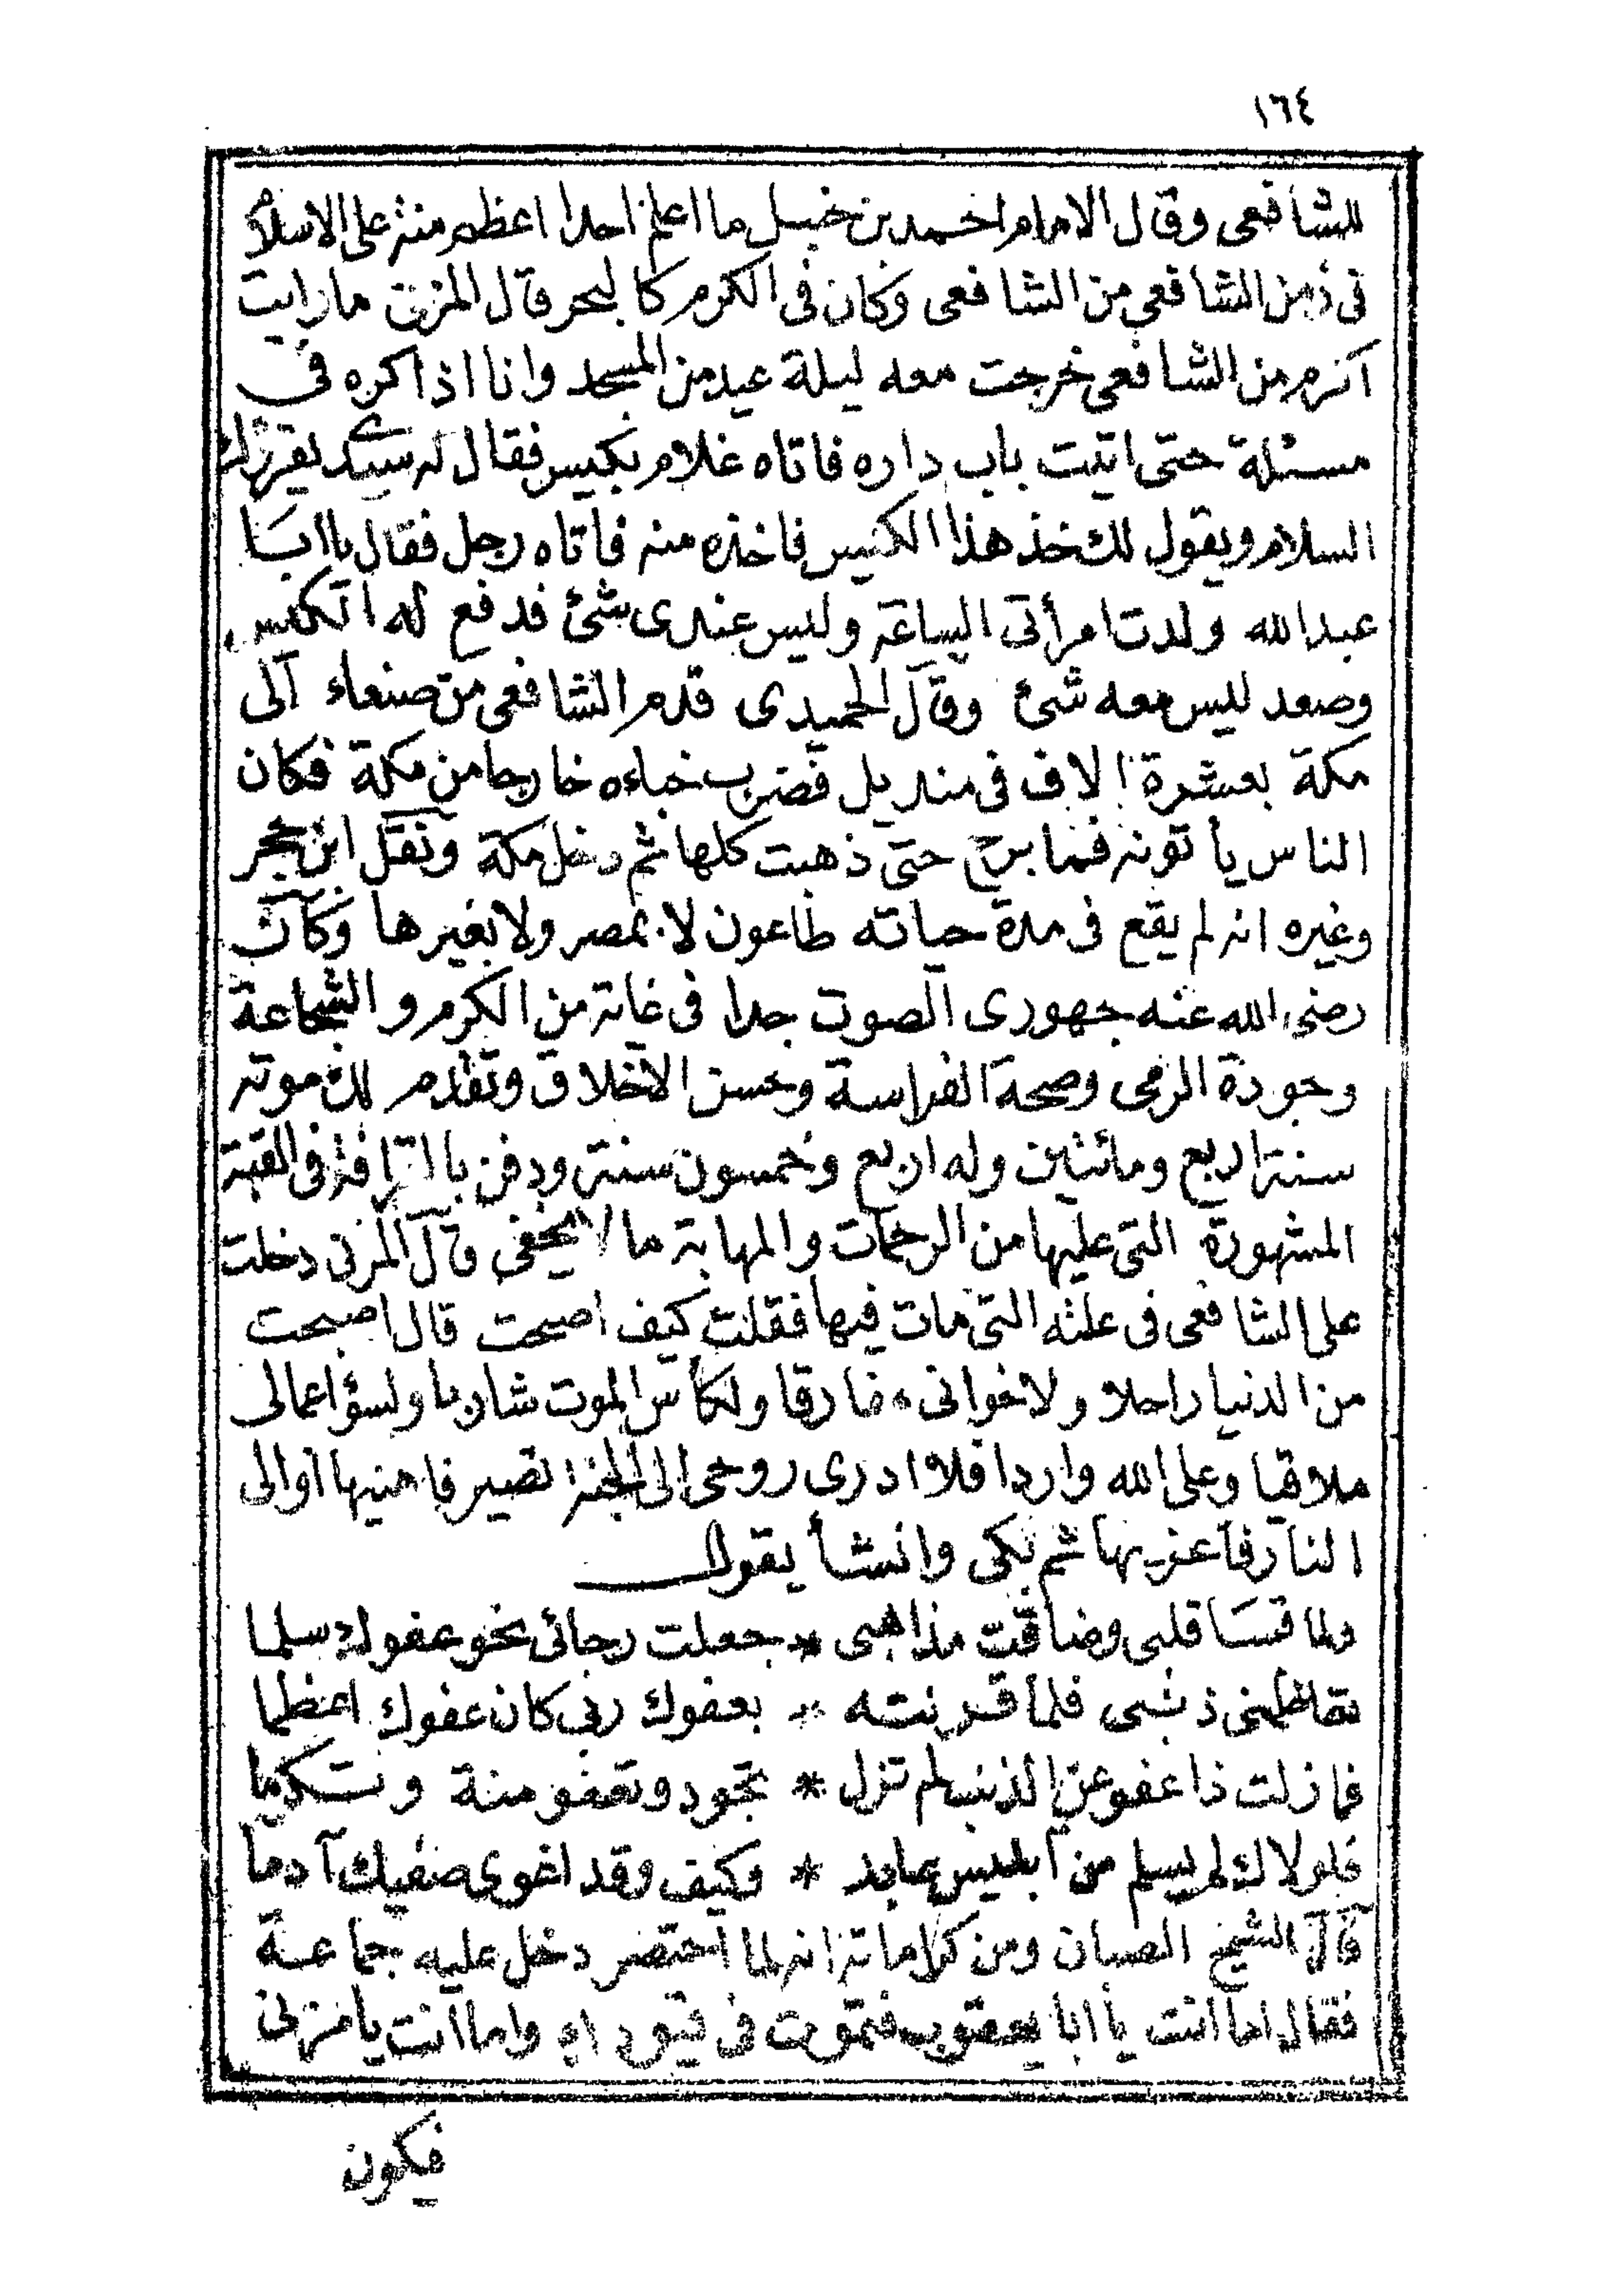 ١٦٤
للشافعى وقال الامام احمد بن حنبل ما اعلم احدا اعظم منة على الاسلام
فى زمن الشافعي من الشافعى وكان فى الكرم كالبحر قال المزنى مارايت
اكرم من الشافعى خرجت معه ليلة عيد من المسجد وانا اذاكره فى
مسئلة حتى اتيت باب داره فاتاه غلام بكيس فقال له سيدى يقرئك
السلام ويقول لك خذ هذا الكيس فاخذه منه فاتاه رجل فقال يا ابا
عبد الله ولدت امرأتى الساعة وليس عندى شئ فدفع له الكيس
وصعد ليس معه شئ وقال الحميدى قدم الشافعى من صنعاء الى
مكة بعشرة الاف فى منديل فضرب خباءه خارجا من مكة فكان
الناس يأتونه فما برح حتى ذهبت كلها ثم دخل مكة ونقل ابن حجر
وغيره انه لم يقع فى مدة حياته طاعون لا بمصر ولا بغيرها وكان
رضى الله عنه جهورى الصوت جدا فى غاية من الكرم والشجاعة
وجودة الرمى وصحة الفراسة وحسن الاخلاق وتقدم لك موته
سنة اربع ومائتين وله اربع وخمسون سنة ودفن بالقرافة فى القبة
المشهورة التى عليها من الرحمات والمهابة ما لا يخفى قال المزنى دخلت
على الشافعى فى علته التى مات فيها فقلت كيف اصبحت قال اصبحت
من الدنيا راحلا ولاخوانى مفارقا ولكأس الموت شاربا ولسؤ اعمالى
ملاقيا وعلى الله واردا فلا ادرى روحى الى الجنة تصير فاهنيها او الى
النار فاعزيها ثم بكى وانشأ يقول
ولما قسا قلبى وضاقت مذاهبى * جعلت رجائى نحو عفوك سلما
تعاظمنى ذنبى فلما قرنته * بعفوك ربى كان عفوك اعظما
فما زلت ذا عفو عن الذنب لم تزل * تجود وتعفو منة وتكرما
فلولاك لم يسلم من ابليس عابد * وكيف وقد اغوى صفيك آدما
قال الشيخ الصبان ومن كراماته انه لما احتضر دخل عليه جماعة
فقال اما انت يا ابا يعقوب فتموت فى قيودك واما انت يا مزنى
فيكون